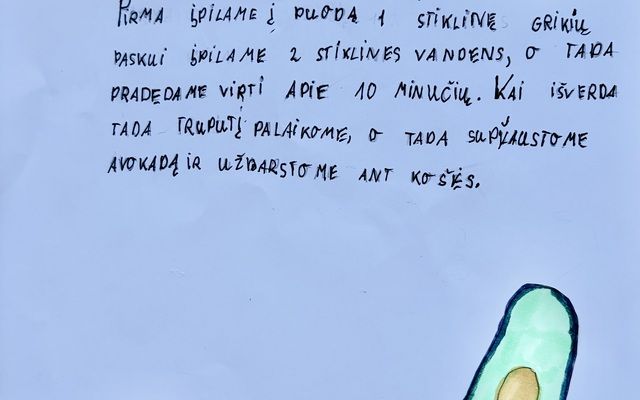 PIRMA ĮPILAME Į PUODĄ 1 STIKLINĘ GRIKIŲ
PASKUI ĮPILAME 2 STIKLINES VANDENS, O TADA
PRADEDAME VIRTI APIE 10 MINUČIŲ. KAI IŠVERDA
TADA TRUPUTĮ PALAIKOME, O TADA SUPJAUSTOME
AVOKADĄ IR UŽBARSTOME ANT KOŠĖS.